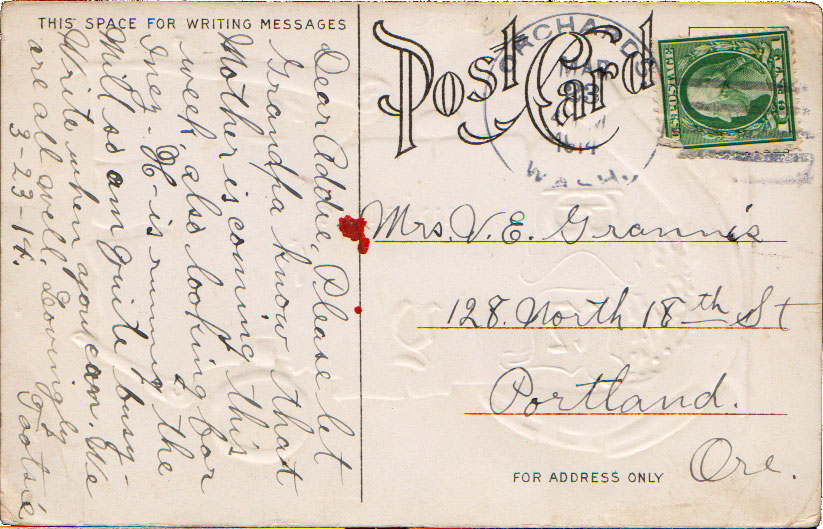 THIS SPACE FOR WRITING MESSAGES
Dear Addie, Please let
Grandpa know that
Mother is coming this
week, also looking for
Inez - H- is running the
Mill so am quite busy-
Write when you can. We
are all well. Lovingly
3-23-14. Tootsie
Post Card
ORCHARDS
MAR
23
1914
WASH.
U.S. POSTAGE
Mrs. V. E. Grannis
128. North 18th St
Portland.
Ore.
FOR ADDRESS ONLY